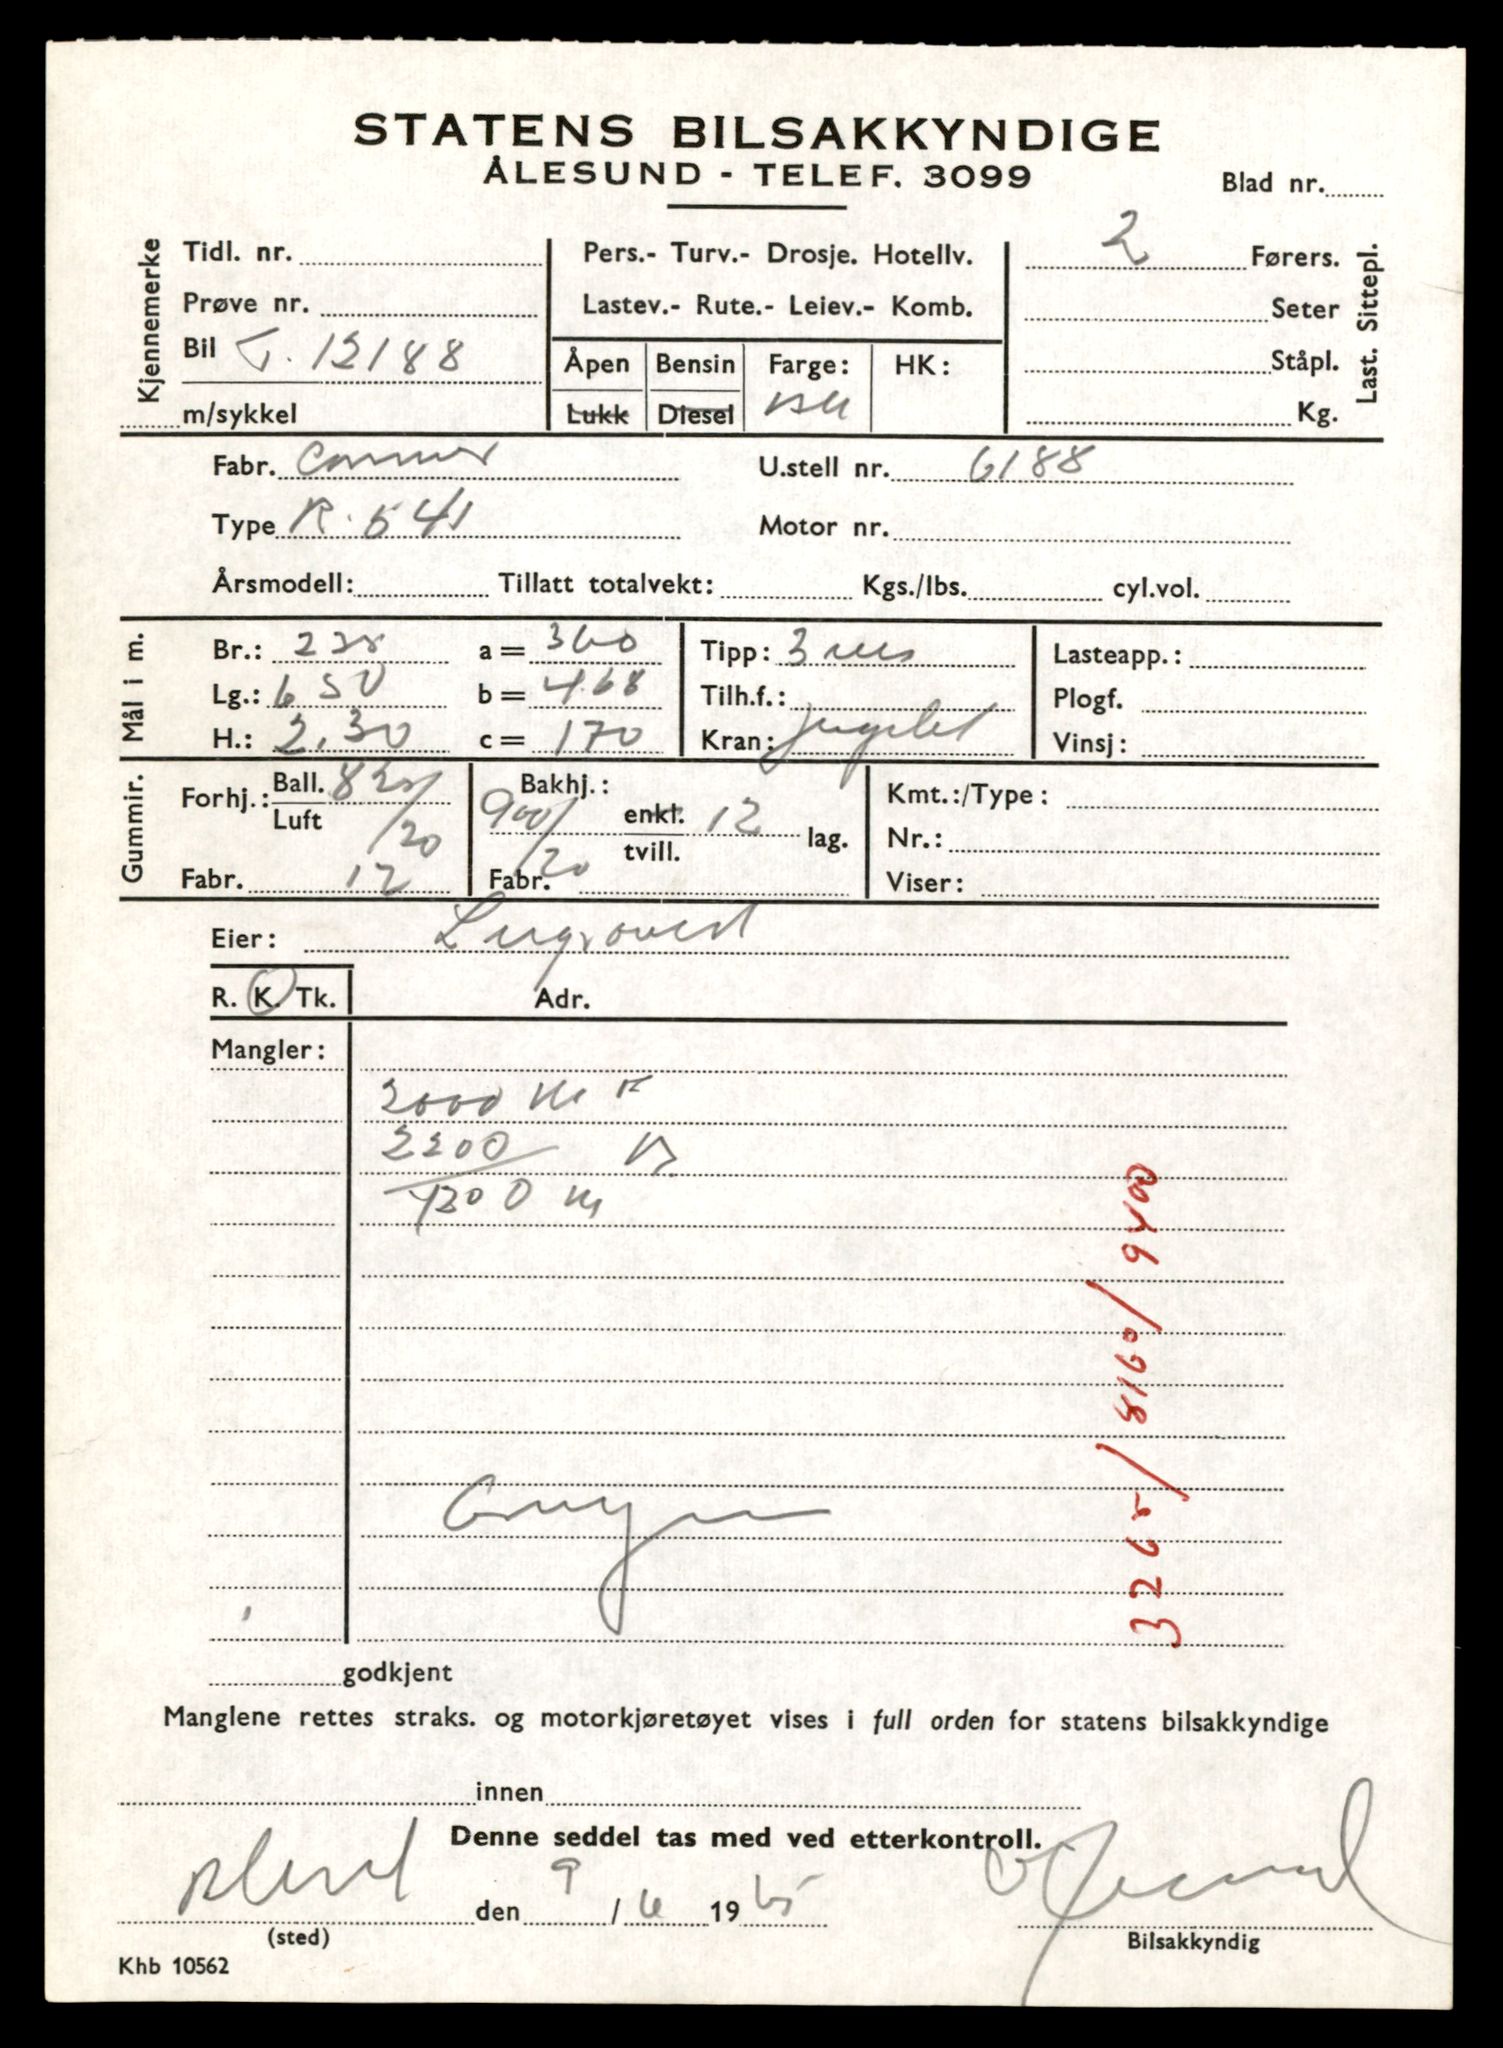 STATENS BILSAKKYNDIGE
ÅLESUND - TELEF. 3099
Blad nr.
Kjennemerke
Tidl. nr.
Prøve nr.
Bil T. 12188
m/sykkel
Pers.- Turv.- Drosje. Hotellv.
Lastev.- Rute.- Leiev.- Komb.
Åpen Bensin Farge: HK:
Lukk Diesel
2 Førers.
Seter
Ståpl.
Kg.
Last. Sittepl.
Fabr. Commer U.stell nr. 6188
Type R. 541 Motor nr.
Årsmodell: Tillatt totalvekt: Kgs./lbs. cyl.vol.
Mål i m.
Br.: 228 a = 360 Tipp: 3 Lasteapp.:
Lg.: 6 50 b = 4.68 Tilh.f.: Plogf.
H.: 2.30 c = 170 Kran: Vinsj:
Gummir.
Forhj.: Ball. 825/20 Bakhj.: 900/20 enkl. 12 lag. Kmt.:/Type:
Luft tvill. Nr.:
Fabr. 12 Fabr. Viser:
Eier:
R. K. Tk. Adr.
Mangler:
2000 F
2200 B
4200
3265/8160/9400
godkjent
Manglene rettes straks. og motorkjøretøyet vises i full orden for statens bilsakkyndige
innen
Denne seddel tas med ved etterkontroll.
den 9 / 6 1965
(sted)
Bilsakkyndig
Khb 10562